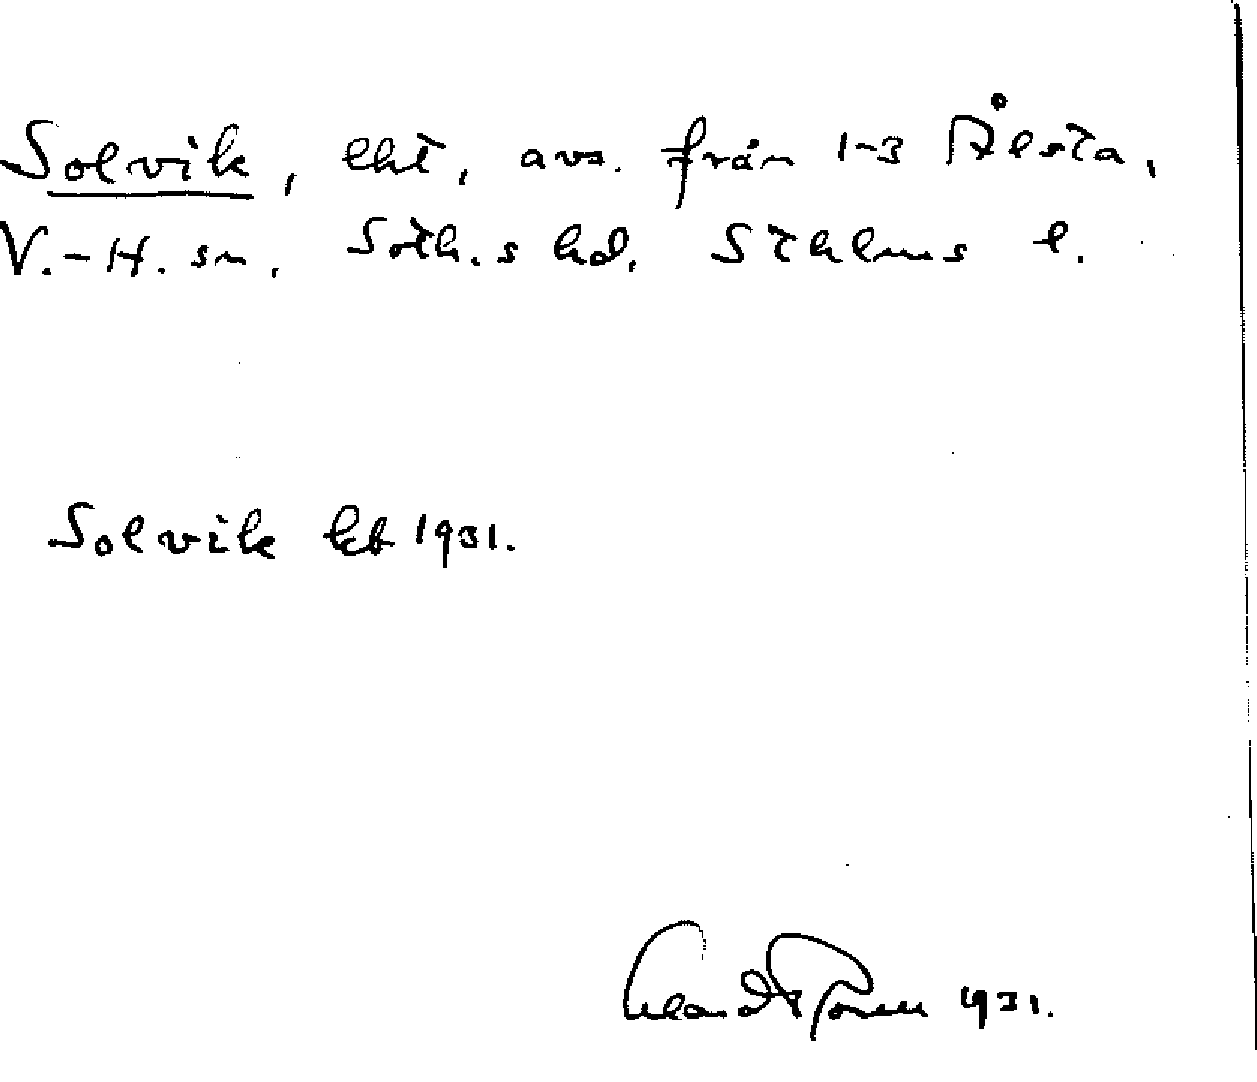 Solvik, lht, avs. från 1-3 Ålsta,
V.-H. sn, Soth.s hd, Sthlms l.
Solvik kb 1931.
1931.